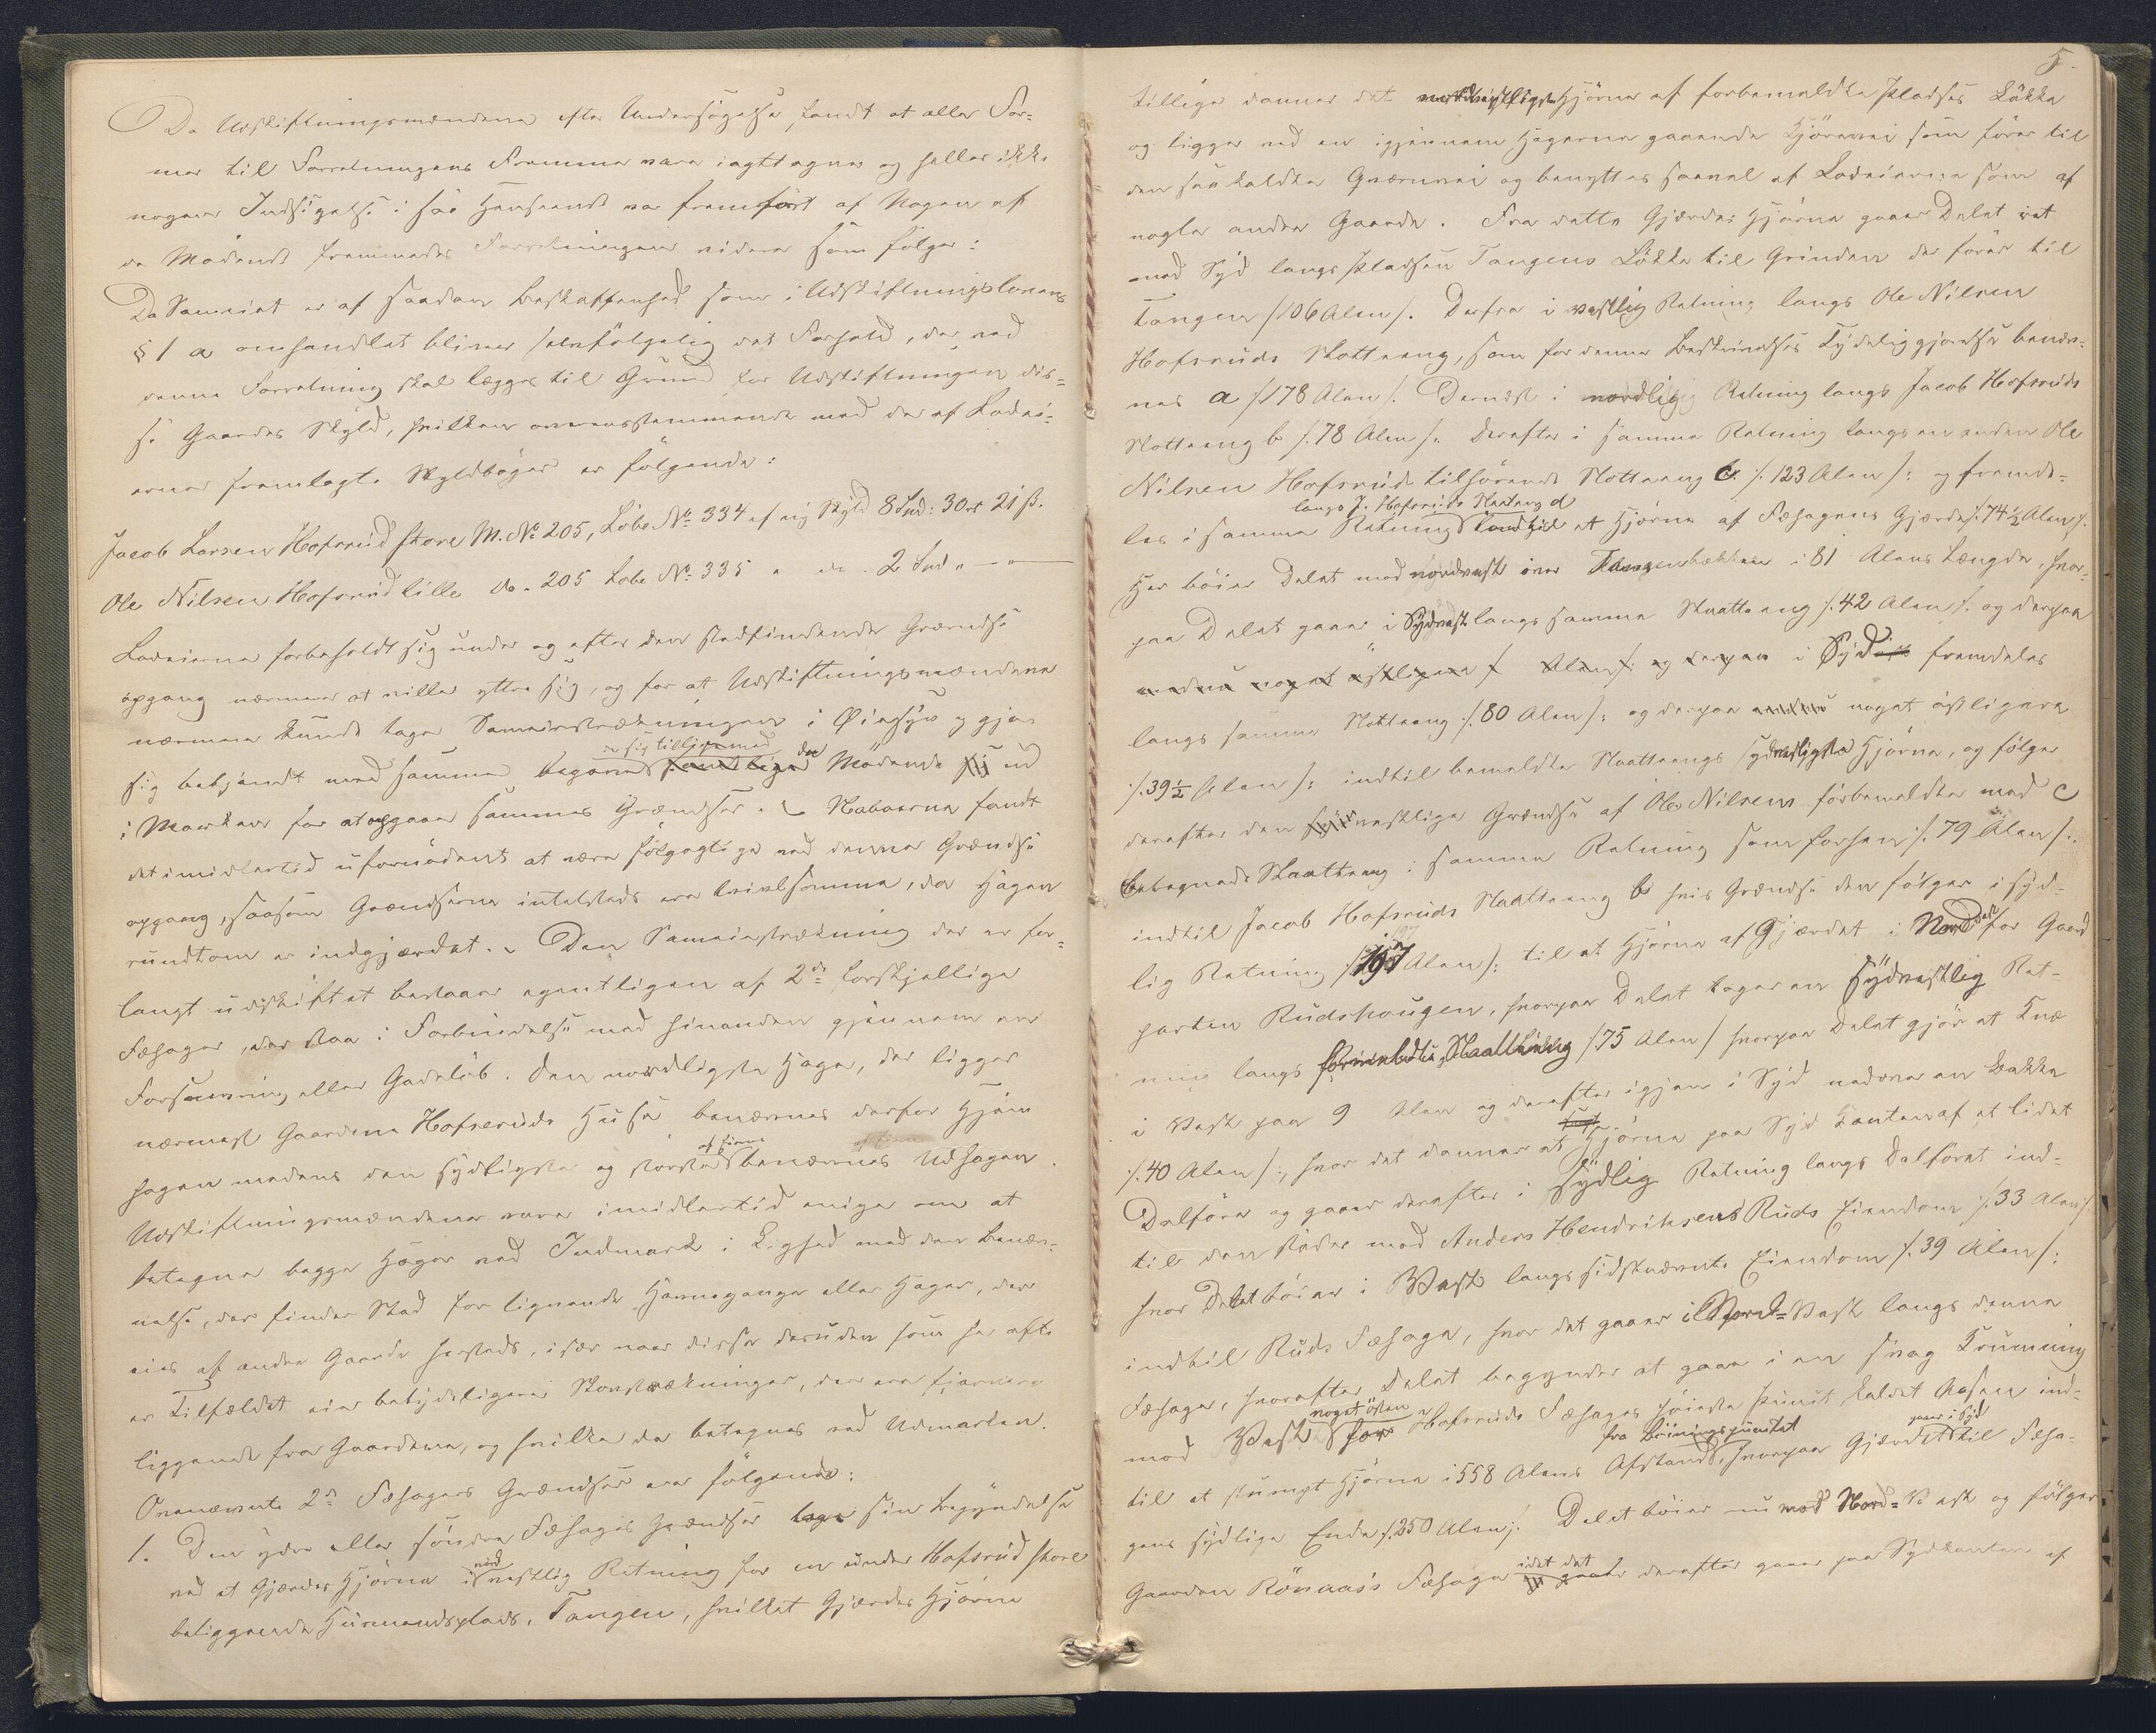 Da Udskiftningsmændene efter Undersøgelse fandt at alle For-
mer til Forretningens Fremme vare iagttagne og heller ikke
nogen Indsigelse i saa Henseende var fremført af Nogen af
de Mødende fremmedes Forretningen videre som følger:
Da Sameiet er af saadan Beskaffenhed som i Udskiftningslovens
§ 1 a omhandlet bliver selvfølgelig det Forhold, der ved
denne Forretning skal lægges til Grund for Udskiftningen dis-
se Gaardes Skyld, hvilken overensstemmende med de af Lodei-
erne fremlagte Skyldbøger er følgende:
Jacob Larsen Hofsrud store M. No 205, Løbe No 334 af ny Skyld 8 Smd: 30 rt 21 ß.
Ole Nilsen Hofsrud lille do. 205 Løbe No 335 " do. 2 Smd " — " —
Lodeierne forbeholdt sig under og efter den stedfindende Grændse
opgang nærmere at ville yttre sig, og for at Udskiftningsmændene
nærmere kunde tage Sameiestrækningen i Øiesyn og gjøre
sig bekjendt med samme begave de sig tilligemed de Mødende ud
i Marken for at opgaae sammes Grændser. Naboerne fandt
det imidlertid ufornødent at være følgagtige ved denne Grændse
opgang, saasom Grændserne intetsteds ere tvivlsomme, da Hagen
rundtom er indgjærdet. Den Sameiestrækning der er for-
langt udskiftet bestaaer egentligen af 2de forskjellige
Fæhager, der staa i Forbindelse med hinanden gjennem en
Forsnevring eller Gadeløb. Den nordligste Hage, der ligger
nærmest Gaardene Hofseruds Huse benævnes derfor Hjem
hagen medens den sydligste og største af disse benævnes Udhagen.
Udskiftningsmændene vare imidlertid enige om at
betegne begge Hager ved Indmark i Lighed med den Benæv-
nelse, der finder Sted for lignende Havnegange eller Hager, der
eies af andre Gaarde hersteds, især naar disse desuden som her ofte
er Tilfældet eier betydeligere Skovstrækninger, der ere fjernere
liggende fra Gaardene, og hvilke da betegnes ved Udmarken.
Ovennævnte 2de Fæhagers Grændser ere følgende:
1. Den ydre eller søndre Fæhages Grændser tage sin Begyndelse
ved et Gjærdes Hjørne i nordvestlig Retning for en under Hofsrud store
beliggende Husmandsplads, Tangen, hvilket Gjærdes Hjørne
5.
tillige danner det nordvestligste Hjørne af forbemeldte Pladses Løkke
og ligger ved en igjennem Hagerne gaaende Kjørevei som fører til
den saakaldte Qværnvei og benyttes saavel af Lodeierne som af
nogle andre Gaarde. Fra dette Gjærdes Hjørne gaaer Delet ret
mod Syd langs Pladsen Tangens Løkke til Grinden der fører til
Tangen /106 Alen/. Derfra i vestlig Retning langs Ole Nilsen
Hofsruds Slotteeng, som for denne Beskrivelses Tydeliggjørelse benæv-
nes a /178 Alen/. Dernæst i nordlig Retning langs Jacob Hofsruds
Slotteeng b /.78 Alen/. Derefter i samme Retning langs en anden Ole
Nilsen Hofsrud tilhørende Slotteeng c /.123 Alen/: og fremde-
les i samme Retning langs J. Hofsruds Slaateeng d til et Hjørne af Fæhagens Gjærde /.74½ Alen/.
Her bøier Delet mod nordvest over Tangenbækken i 81 Alens Længde, hvor-
paa Delet gaaer i Sydvest langs samme Slaatteeng /.42 Alen/. og derpaa
endnu noget østligere / Alen/: og derpaa i Syd fremdeles
langs samme Slotteeng /.80 Alen/: og derpaa endnu noget østligere
/.39½ Alen/: indtil bemeldte Slaatteengs sydvestligste Hjørne, og følger
derefter den vestlige Grændse af Ole Nilsens forbemeldte med c
betegnede Slaatteeng i samme Retning som forhen /.79 Alen/.
indtil Jacob Hofsruds Slaatteeng b hvis Grændse den følger i syd-
lig Retning /197 Alen/: til et Hjørne af Gjærdet i Nordvest for Gaard
parten Rudshougen, hvorpaa Delet tager en sydvestlig Ret-
ning langs formeldte Slaatteeng /75 Alen/ hvorpaa Delet gjør et Knæ
i Vest paa 9 Alen og derefter igjen i Syd nedover en Bakke
/.40 Alen/:, hvor det danner et Hjørne paa Syd Kanten af et lidet
Dalføre og gaaer derefter i sydlig Retning langs Dalføret ind-
til den støder mod Anders Hendriksens Ruds Eiendom /.33 Alen/.
hvor Delet bøier i Vest langs sidstnævnte Eiendom /.39 Alen/:
indtil Ruds Fæhage, hvor det gaaer i Nord-Vest langs denne
Fæhage, hvorefter Delet begynder at gaae i en svag Krumning
mod Vest noget østen for Hofsruds Fæhages høieste Punct kaldet Aasen ind-
til et stumpt Hjørne i 558 Alens Afstand fra Bøiningspunctet, hvorpaa Gjærdet gaaer i Syd til Fæha-
gens sydlige Ende /.250 Alen/: Delet bøier nu mod Nord-Vest og følger
Gaarden Rønaas's Fæhage idet det derefter gaaer paa Sydkanten af